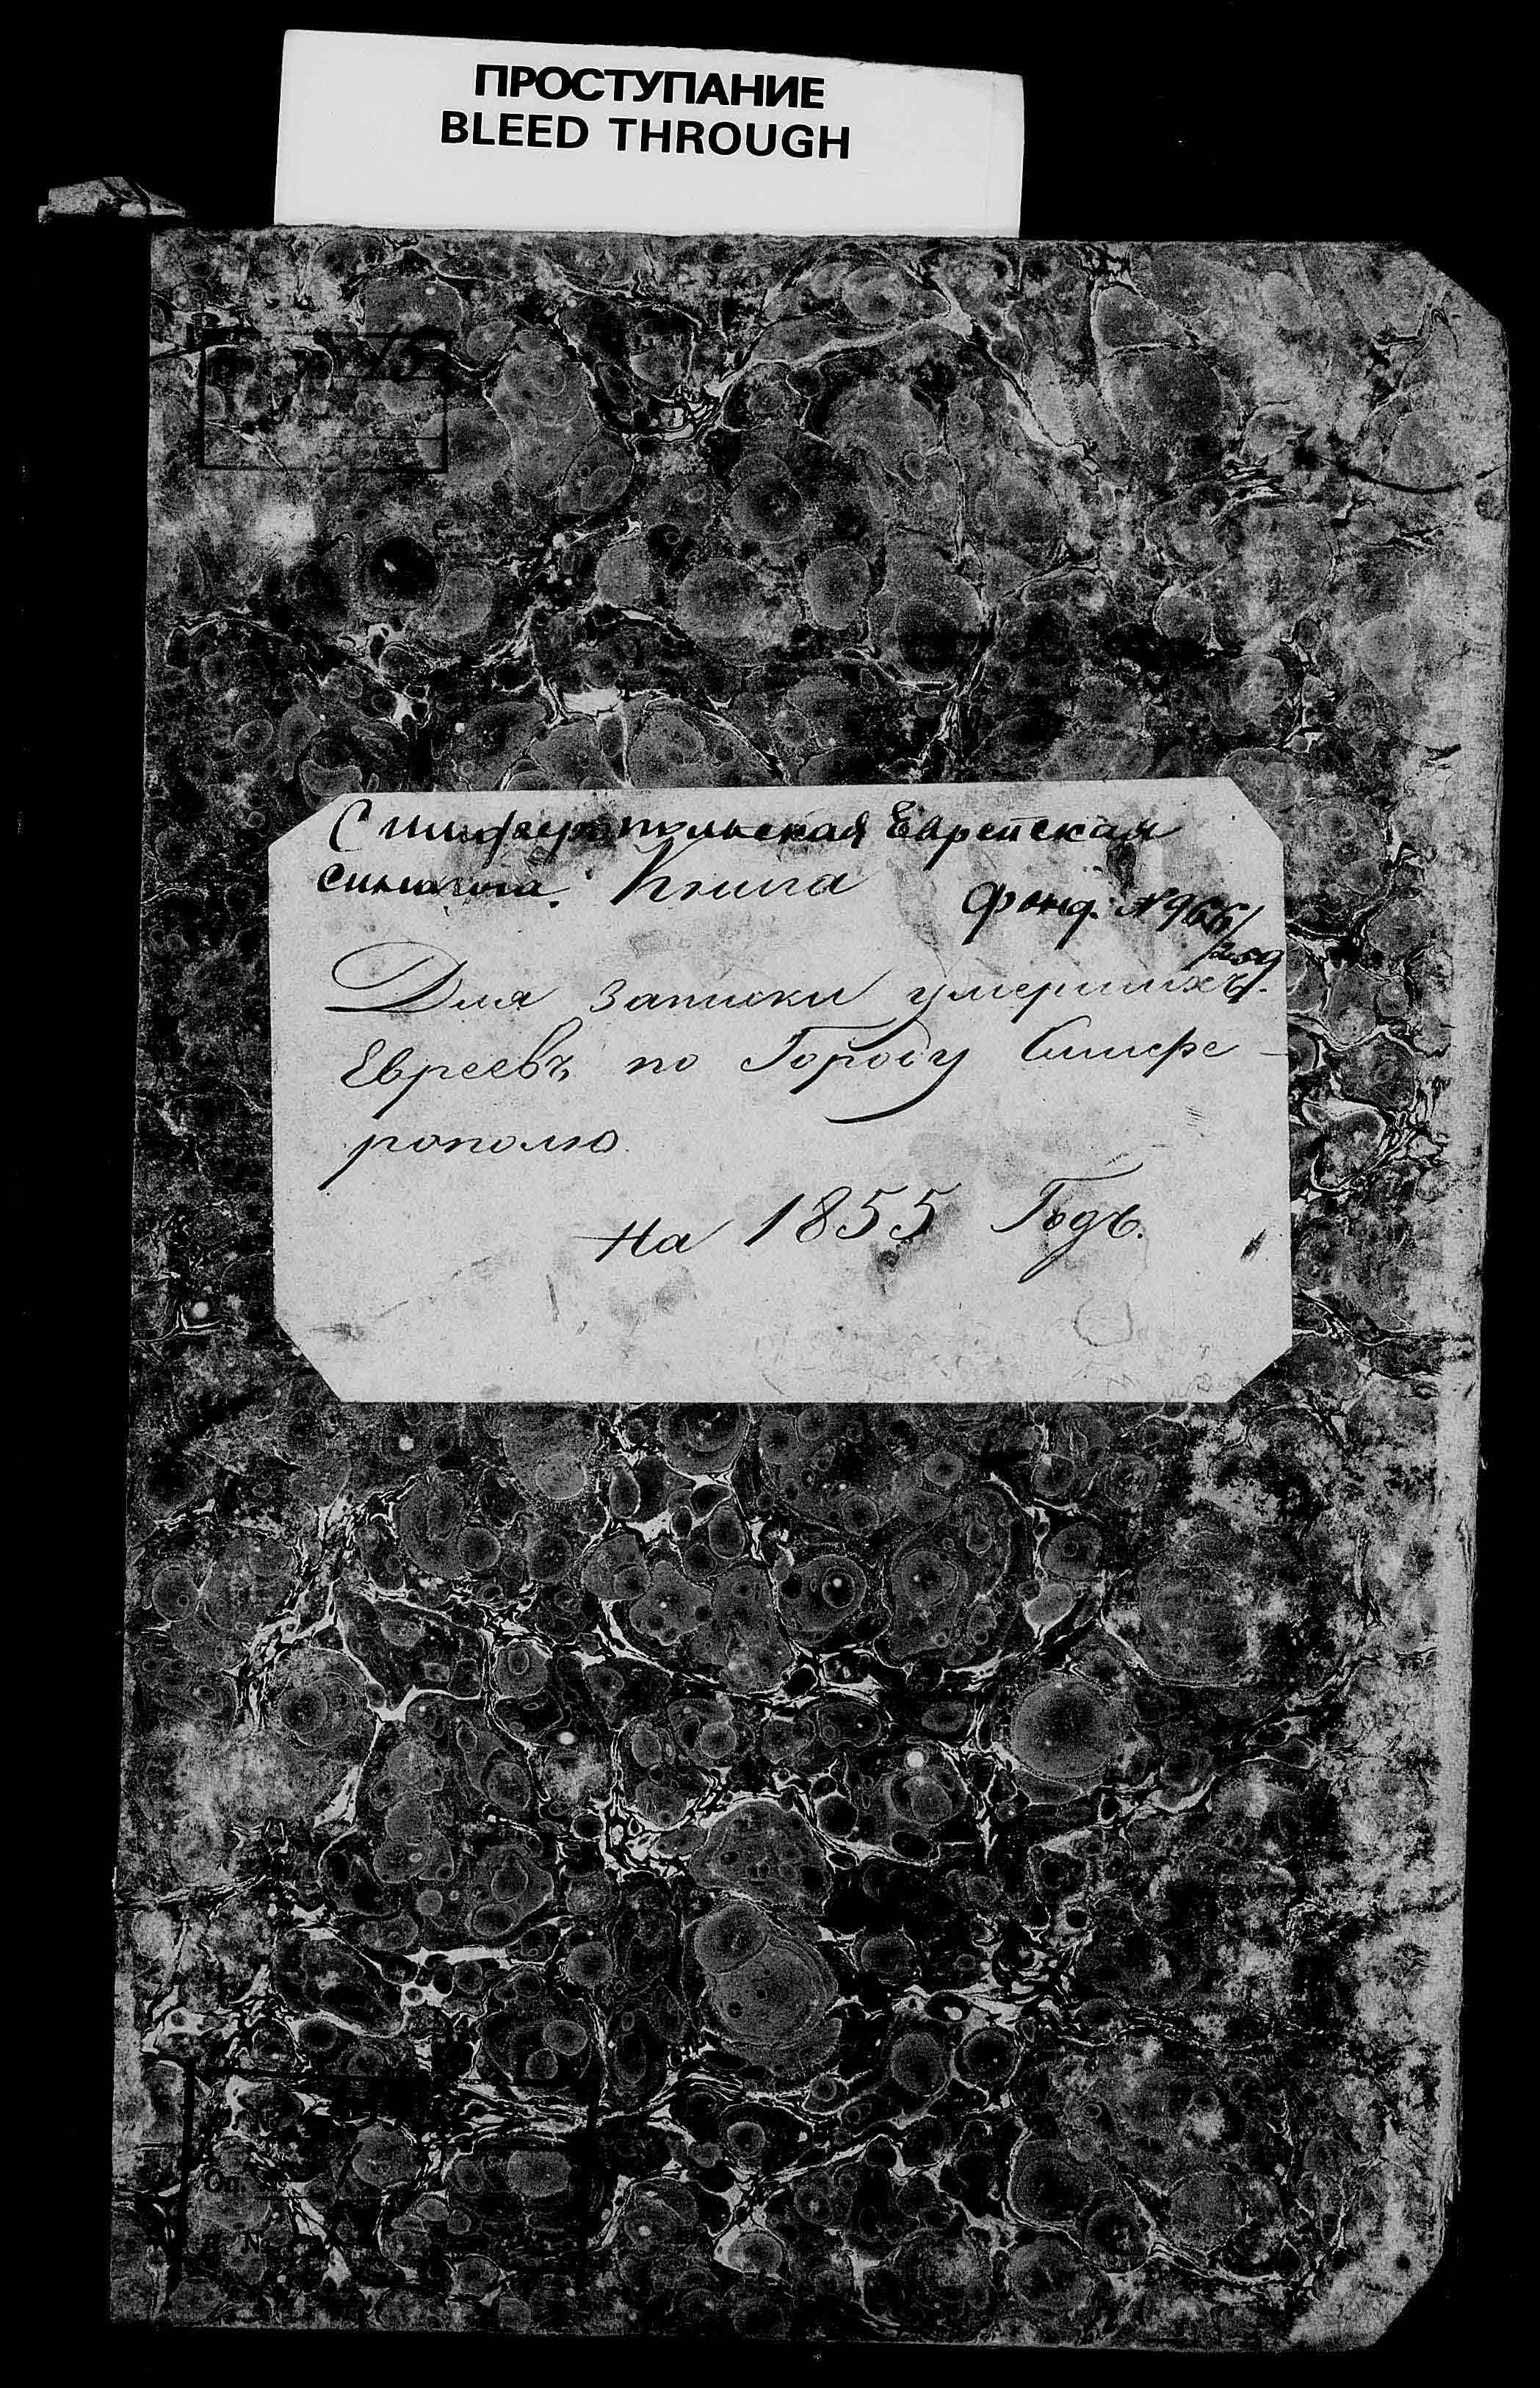 ПРОСТУПАНИЕ
BLEED THROUGH
15
Симферопольская Еврейская
синагога. Книга
Фонд. №966/259
Для записки умершихъ
Евреевъ по Городу Симфе-
рополю
На 1855 Годъ.
Оп.
№